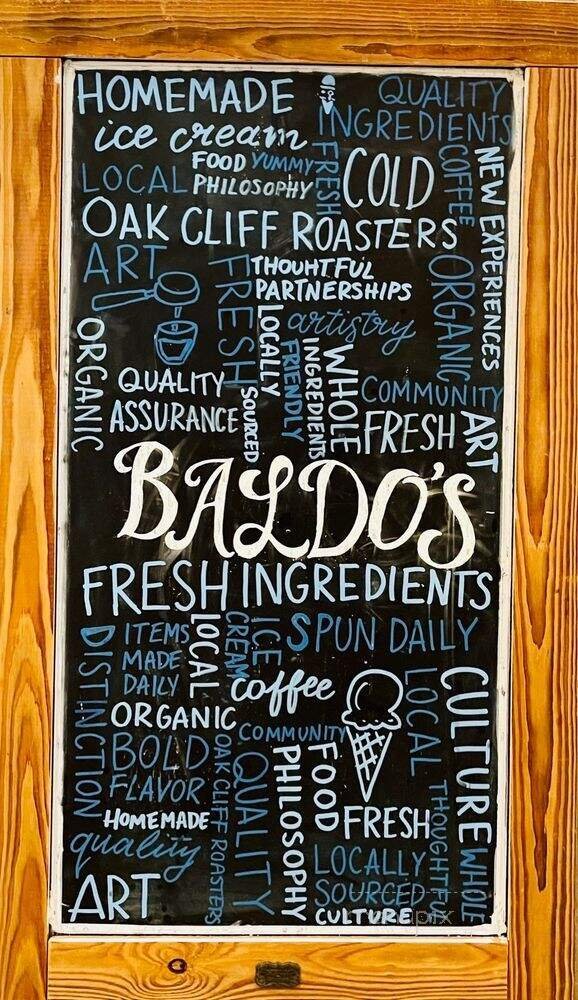 HOMEMADE
QUALITY
INGREDIENTS
ice cream
FOOD YUMMY
PHILOSOPHY
LOCAL
FRESH
COLD
COFFEE
NEW EXPERIENCES
OAK CLIFF ROASTERS
ART
FRESH
THOUHTFUL
PARTNERSHIPS
ORGANIC
artistry
LOCALLY
SOURCED
FRIENDLY
INGREDIENTS
WHOLE
ORGANIC
QUALITY
ASSURANCE
COMMUNITY
FRESH
ART
BALDO'S
FRESH INGREDIENTS
DISTINCTION
ITEMS
MADE
DAILY
LOCAL
CREAM
ICE
SPUN DAILY
coffee
LOCAL
CULTURE
ORGANIC
COMMUNITY
BOLD
FLAVOR
OAK CLIFF ROASTERS
QUALITY
PHILOSOPHY
FOOD
FRESH
HOMEMADE
quality
ART
LOCALLY
SOURCED
CULTURE
WHOLE